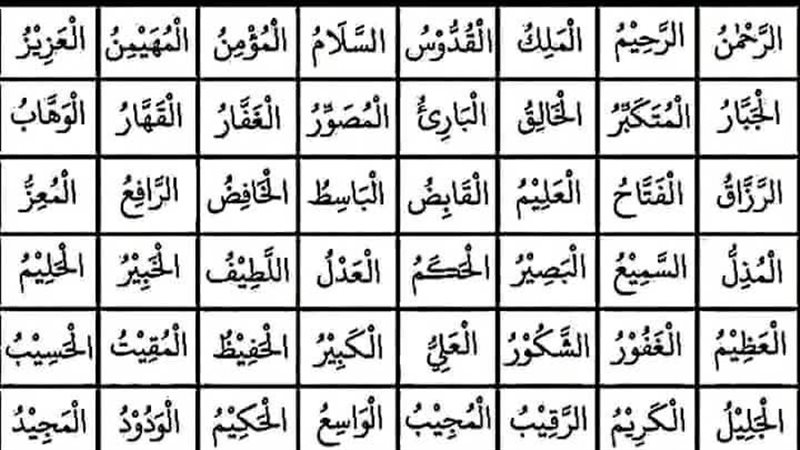 الرَّحْمٰنُ الرَّحِيْمُ الْمَلِكُ الْقُدُّوْسُ السَّلَامُ الْمُؤْمِنُ الْمُهَيْمِنُ الْعَزِيْزُ
الْجَبَّارُ الْمُتَكَبِّرُ الْخَالِقُ الْبَارِئُ الْمُصَوِّرُ الْغَفَّارُ الْقَهَّارُ الْوَهَّابُ
الرَّزَّاقُ الْفَتَّاحُ الْعَلِيْمُ الْقَابِضُ الْبَاسِطُ الْخَافِضُ الرَّافِعُ الْمُعِزُّ
الْمُذِلُّ السَّمِيْعُ الْبَصِيْرُ الْحَكَمُ الْعَدْلُ اللَّطِيْفُ الْخَبِيْرُ الْحَلِيْمُ
الْعَظِيْمُ الْغَفُوْرُ الشَّكُوْرُ الْعَلِيُّ الْكَبِيْرُ الْحَفِيْظُ الْمُقِيْتُ الْحَسِيْبُ
الْجَلِيْلُ الْكَرِيْمُ الرَّقِيْبُ الْمُجِيْبُ الْوَاسِعُ الْحَكِيْمُ الْوَدُوْدُ الْمَجِيْدُ